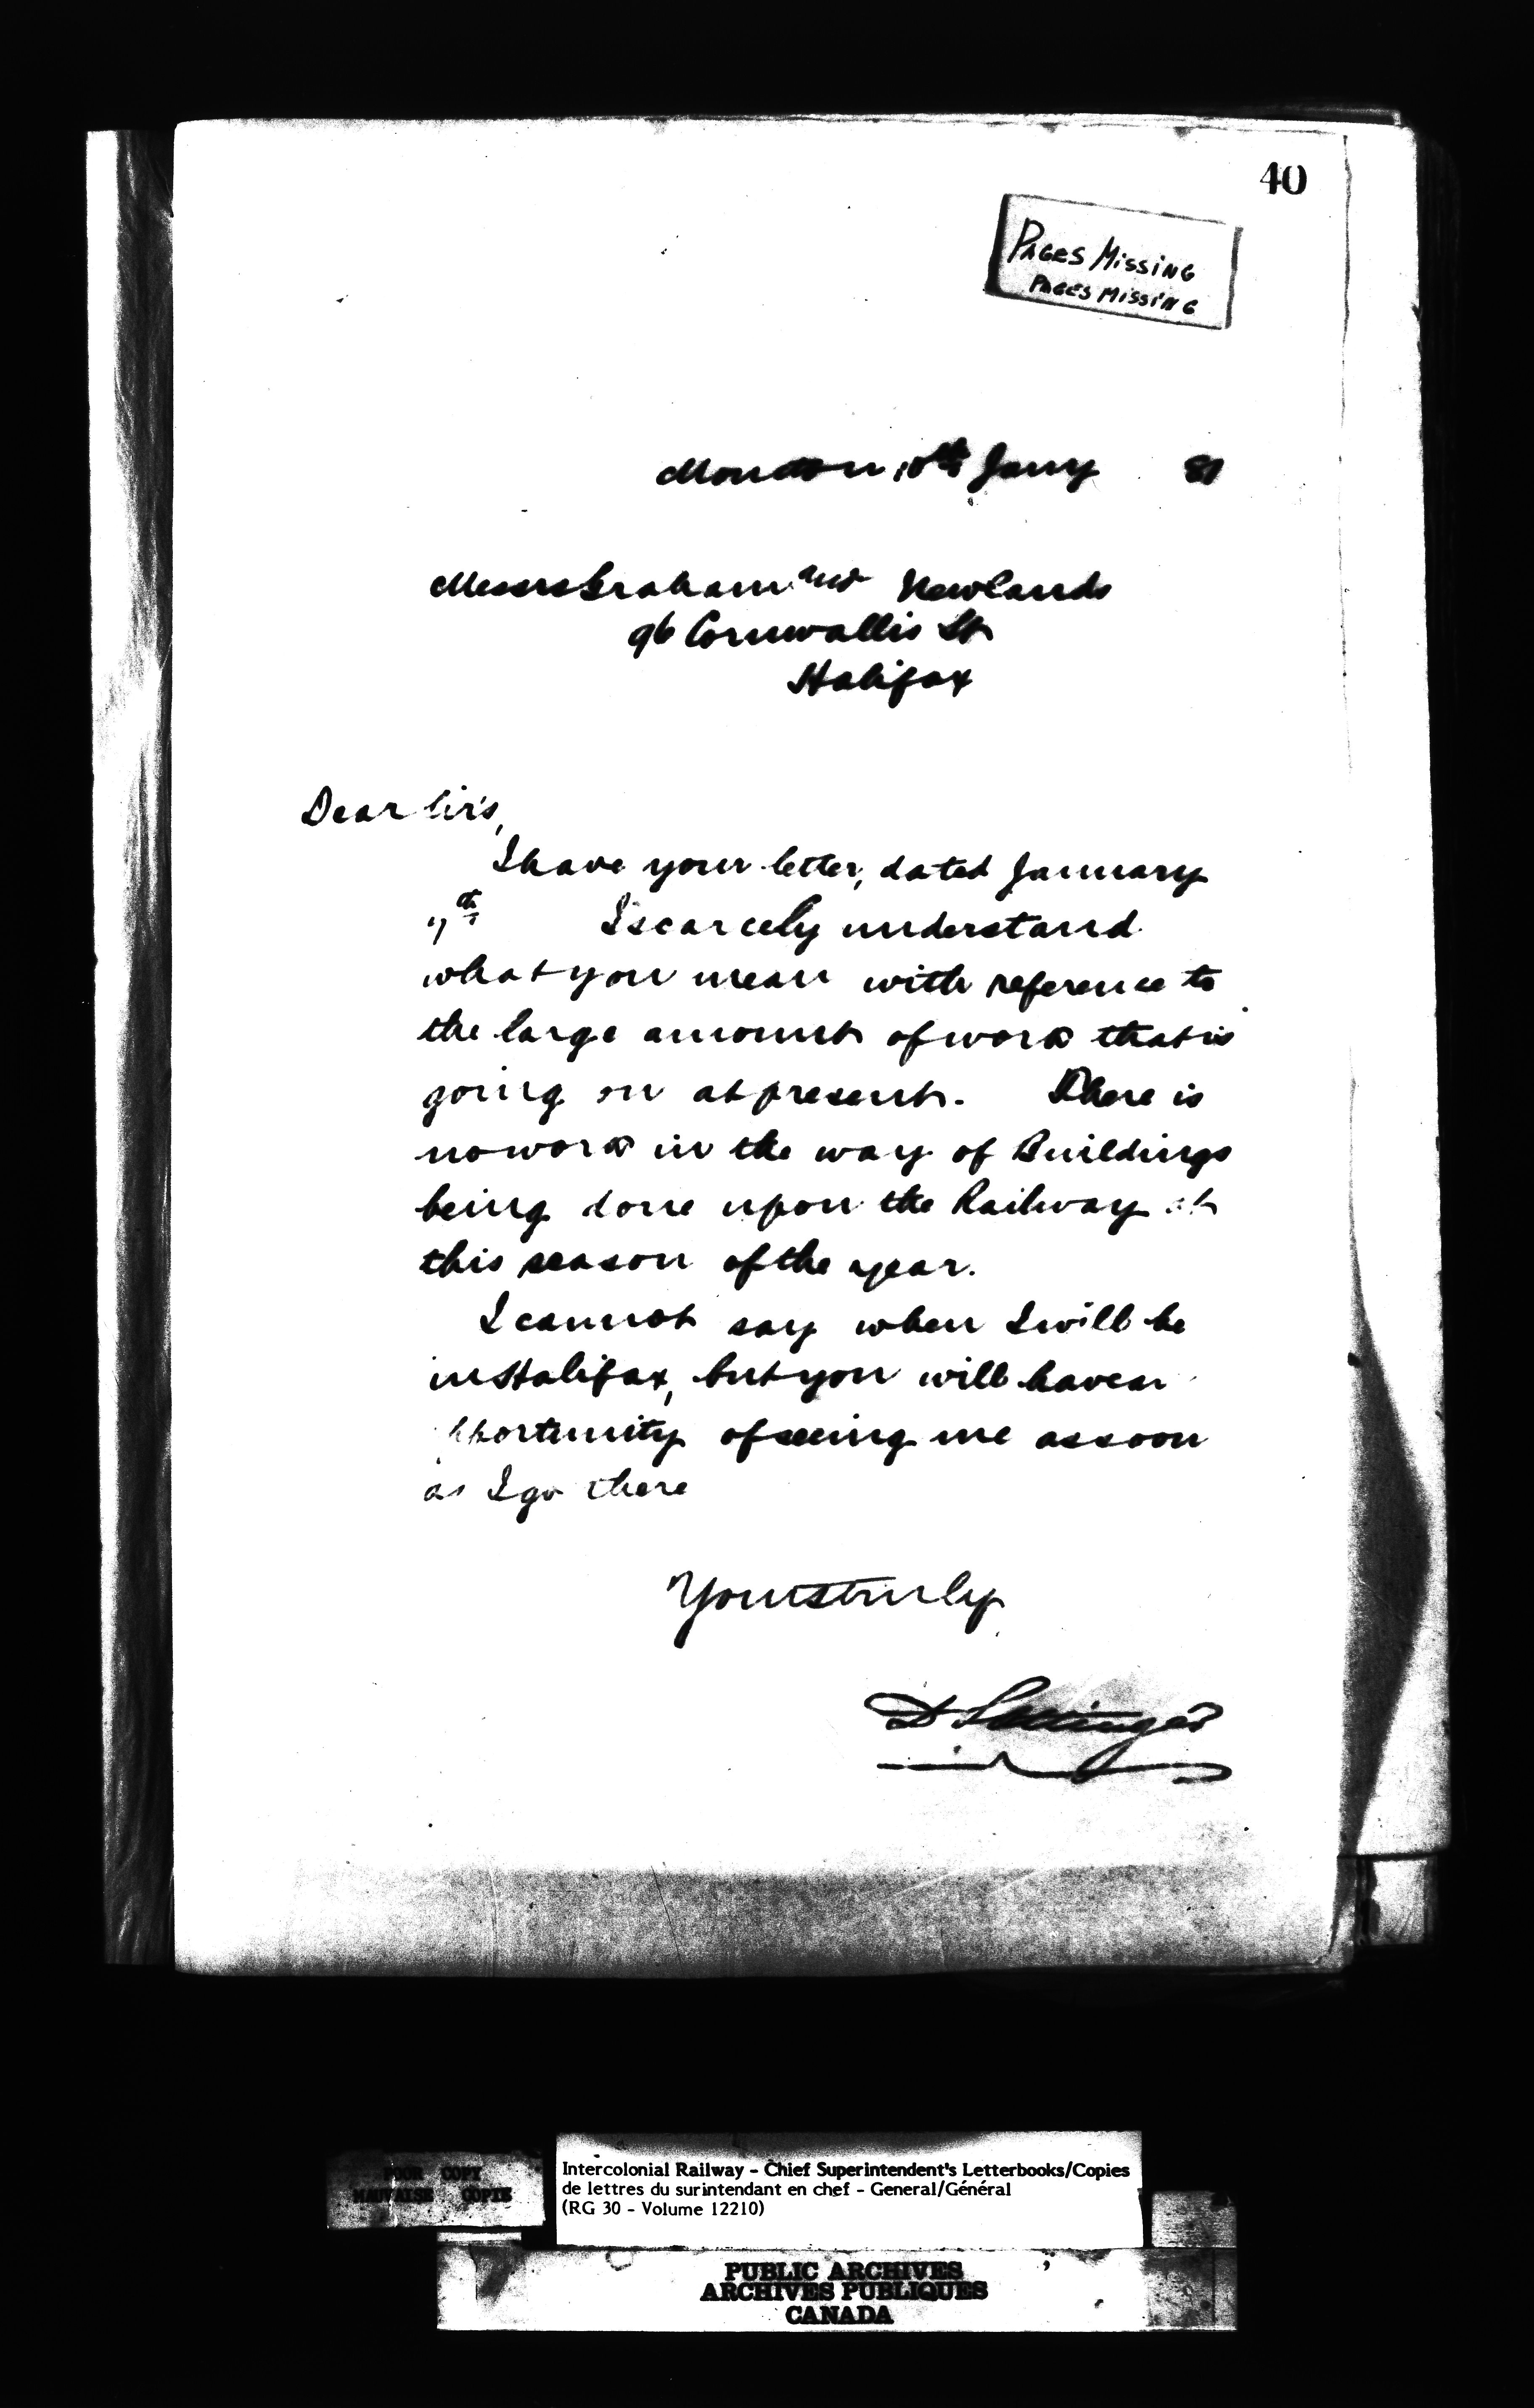 40
PAGES MISSING
PAGES MISSING
Moncton 10th Jany 81
Messrs Graham and Newlands
96 Cornwallis St
Halifax
Dear Sir's,
I have your letter, dated January
7th I scarcely understand
what you mean with reference to
the large amount of work that is
going on at present. There is
no work in the way of Buildings
being done upon the Railway at
this season of the year.
I cannot say when I will be
in Halifax, but you will have an
opportunity of seeing me as soon
as I go there
Yours truly
D Pottinger
POOR COPY
MAUVAISE COPIE
Intercolonial Railway - Chief Superintendent's Letterbooks/Copies
de lettres du surintendant en chef - General/Général
(RG 30 - Volume 12210)
PUBLIC ARCHIVES
ARCHIVES PUBLIQUES
CANADA